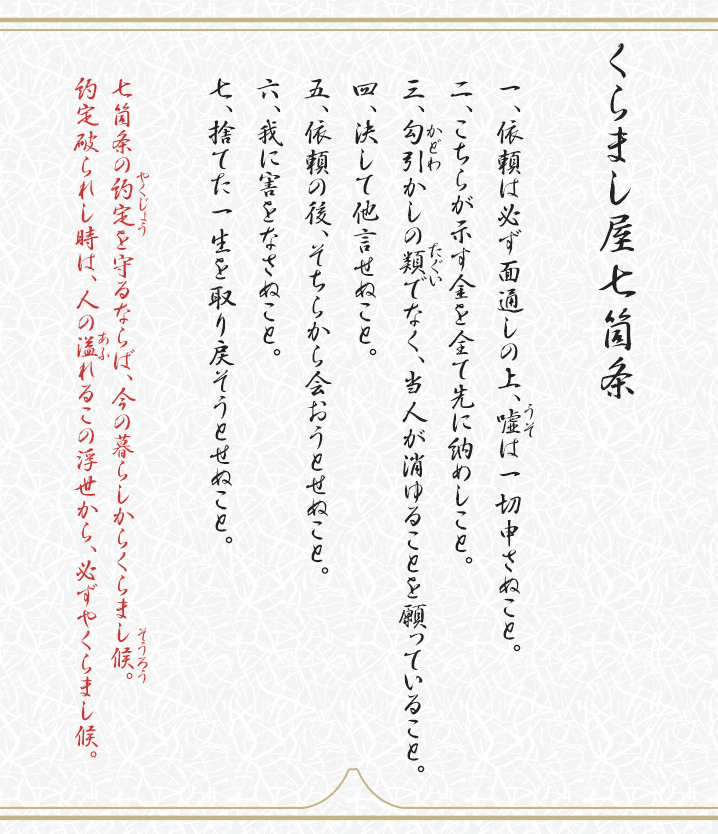 くらまし屋七箇条
一、依頼は必ず面通しの上、嘘は一切申さぬこと。
二、こちらが示す金を全て先に納めしこと。
三、勾引かしの類でなく、当人が消ゆることを願っていること。
四、決して他言せぬこと。
五、依頼の後、そちらから会おうとせぬこと。
六、我に害をなさぬこと。
七、捨てた一生を取り戻そうとせぬこと。
七箇条の約定を守るならば、今の暮らしからくらまし候。
約定破られし時は、人の溢れるこの浮世から、必ずやくらまし候。